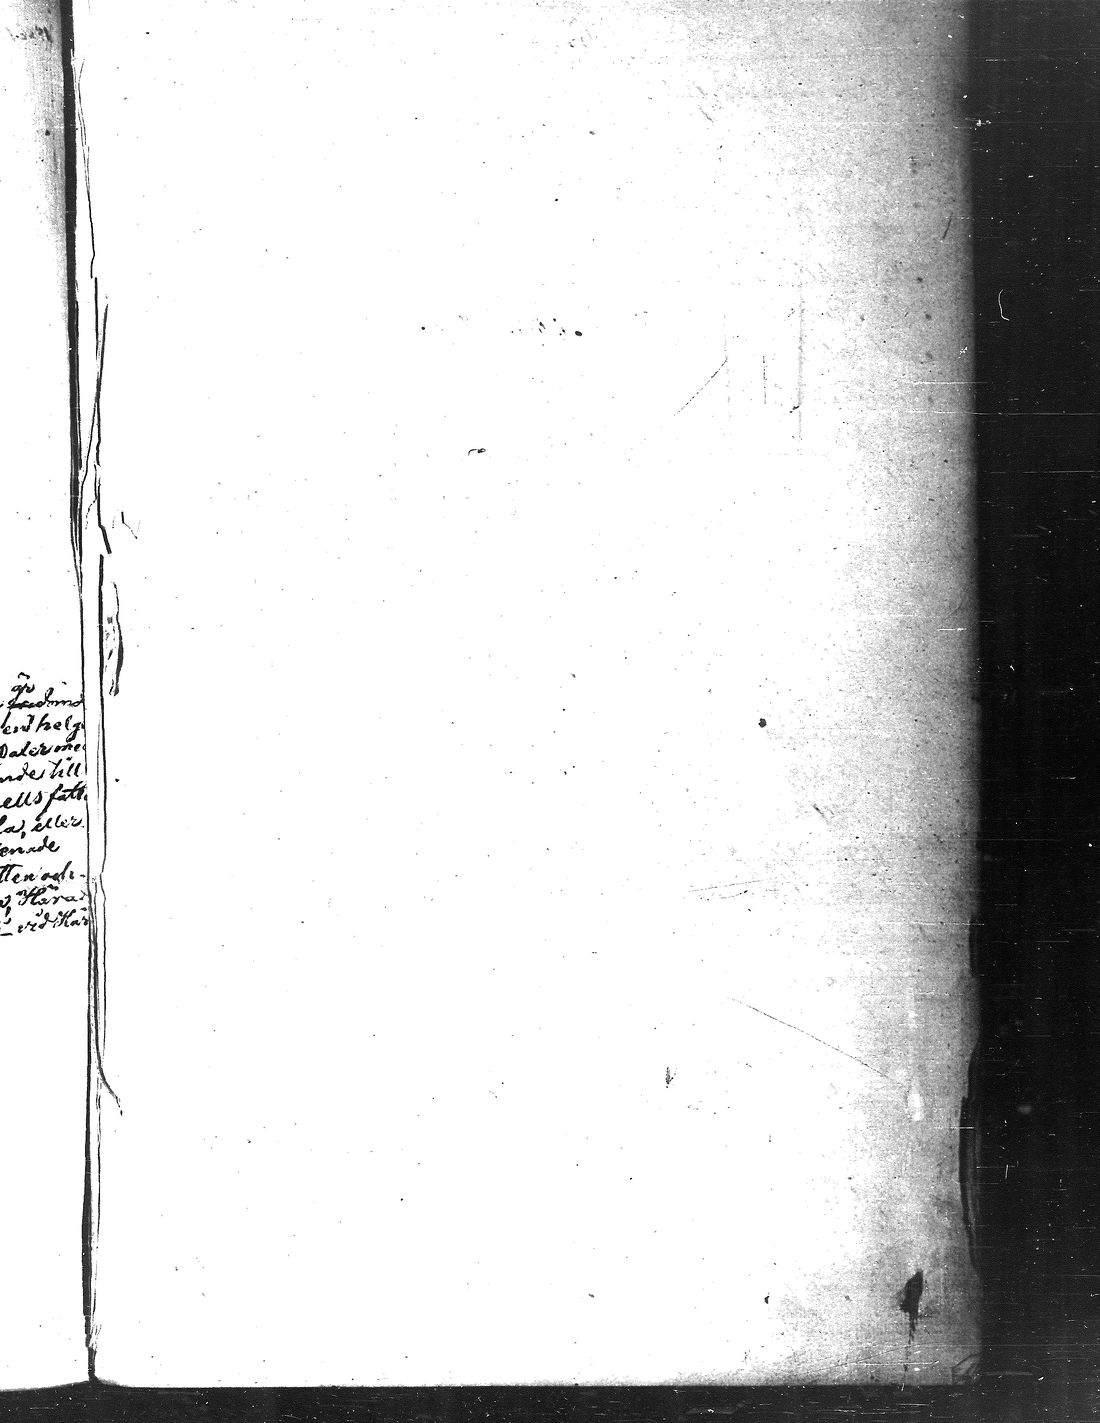 år
ent helg
Daler me
nde till
ells fatt
la, eller
enade
tten och
Härad
vid Här